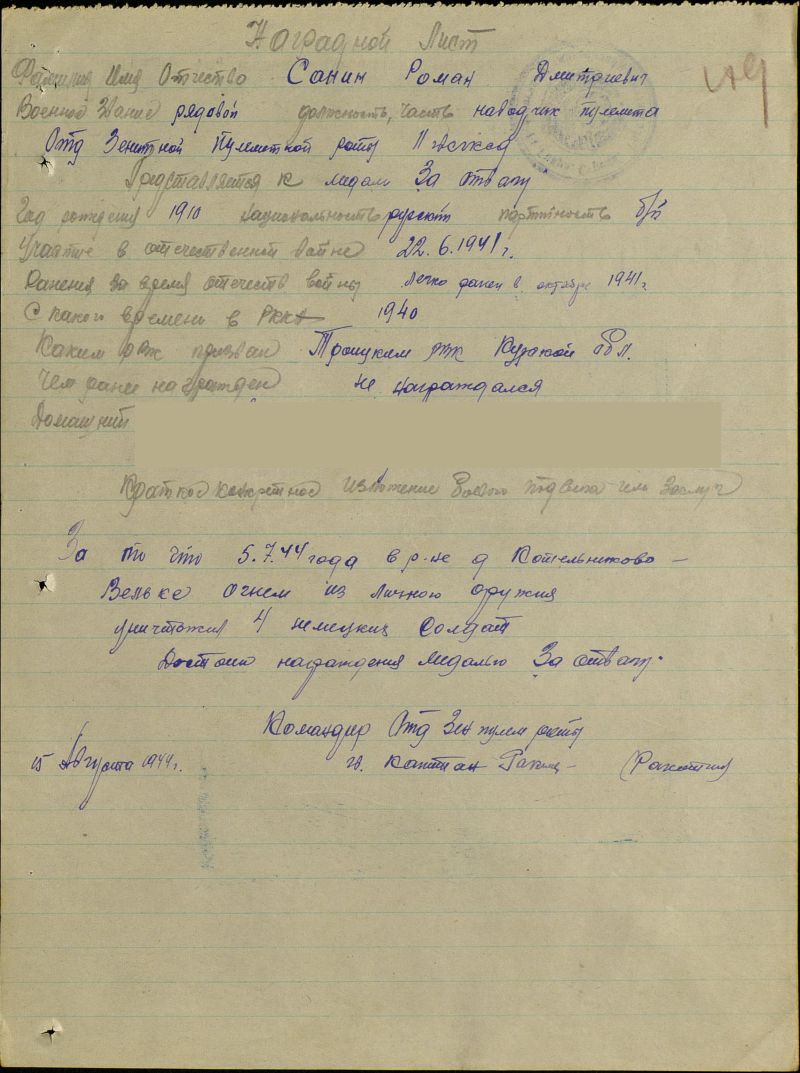 Наградной Лист
Фамилия Имя Отчество Санин Роман Дмитриевич
Военное Звание рядовой должность, часть наводчик пулемета
Отд Зенитной Пулеметной роты
Представляется к медали За отвагу
Год рождения 1910 национальность русский партийность б/п
Участие в отечественной войне 22.6.1941 г.
Ранения за время отечеств войны легко ранен в октябре 1941 г.
С какого времени в РККА 1940
Каким рвк призван Троицким рвк
Чем ранее награжден не награждался
Домашний
Краткое конкретное изложение боевого подвига или заслуг
За то что 5.7.44 года в р-не д Котельниково-
Вельке огнем из личного оружия
уничтожил 4 немецких солдат
Достоин награждения медалью За отвагу.
Командир Отд Зен пулем роты
15 Августа 1944 г. гв. капитан